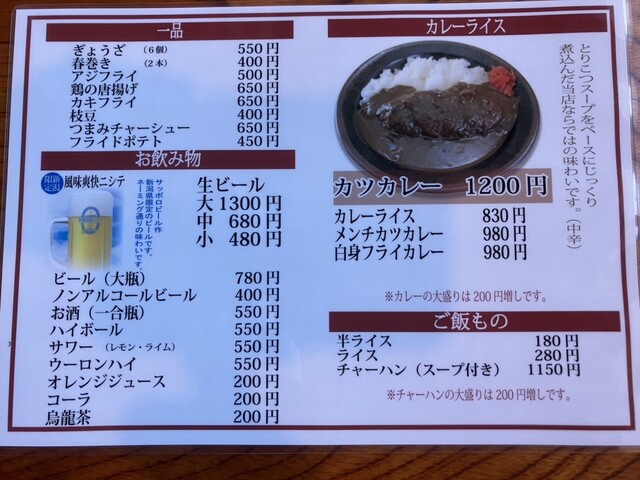 一品
ぎょうざ （6個） 550円
春巻き （2本） 400円
アジフライ 500円
鶏の唐揚げ 650円
カキフライ 650円
枝豆 400円
つまみチャーシュー 650円
フライドポテト 450円
お飲み物
新潟限定
風味爽快ニシテ
サッポロビール作
新潟県限定のビールです。
ネーミング通りの味わいです。
生ビール
大 1300円
中 680円
小 480円
ビール（大瓶） 780円
ノンアルコールビール 400円
お酒（一合瓶） 550円
ハイボール 550円
サワー （レモン・ライム） 550円
ウーロンハイ 550円
オレンジジュース 200円
コーラ 200円
烏龍茶 200円
カレーライス
とりこつスープをベースにじっくり
煮込んだ当店ならではの味わいです。（中辛）
カツカレー 1200円
カレーライス 830円
メンチカツカレー 980円
白身フライカレー 980円
※カレーの大盛りは200円増しです。
ご飯もの
半ライス 180円
ライス 280円
チャーハン（スープ付き） 1150円
※チャーハンの大盛りは200円増しです。